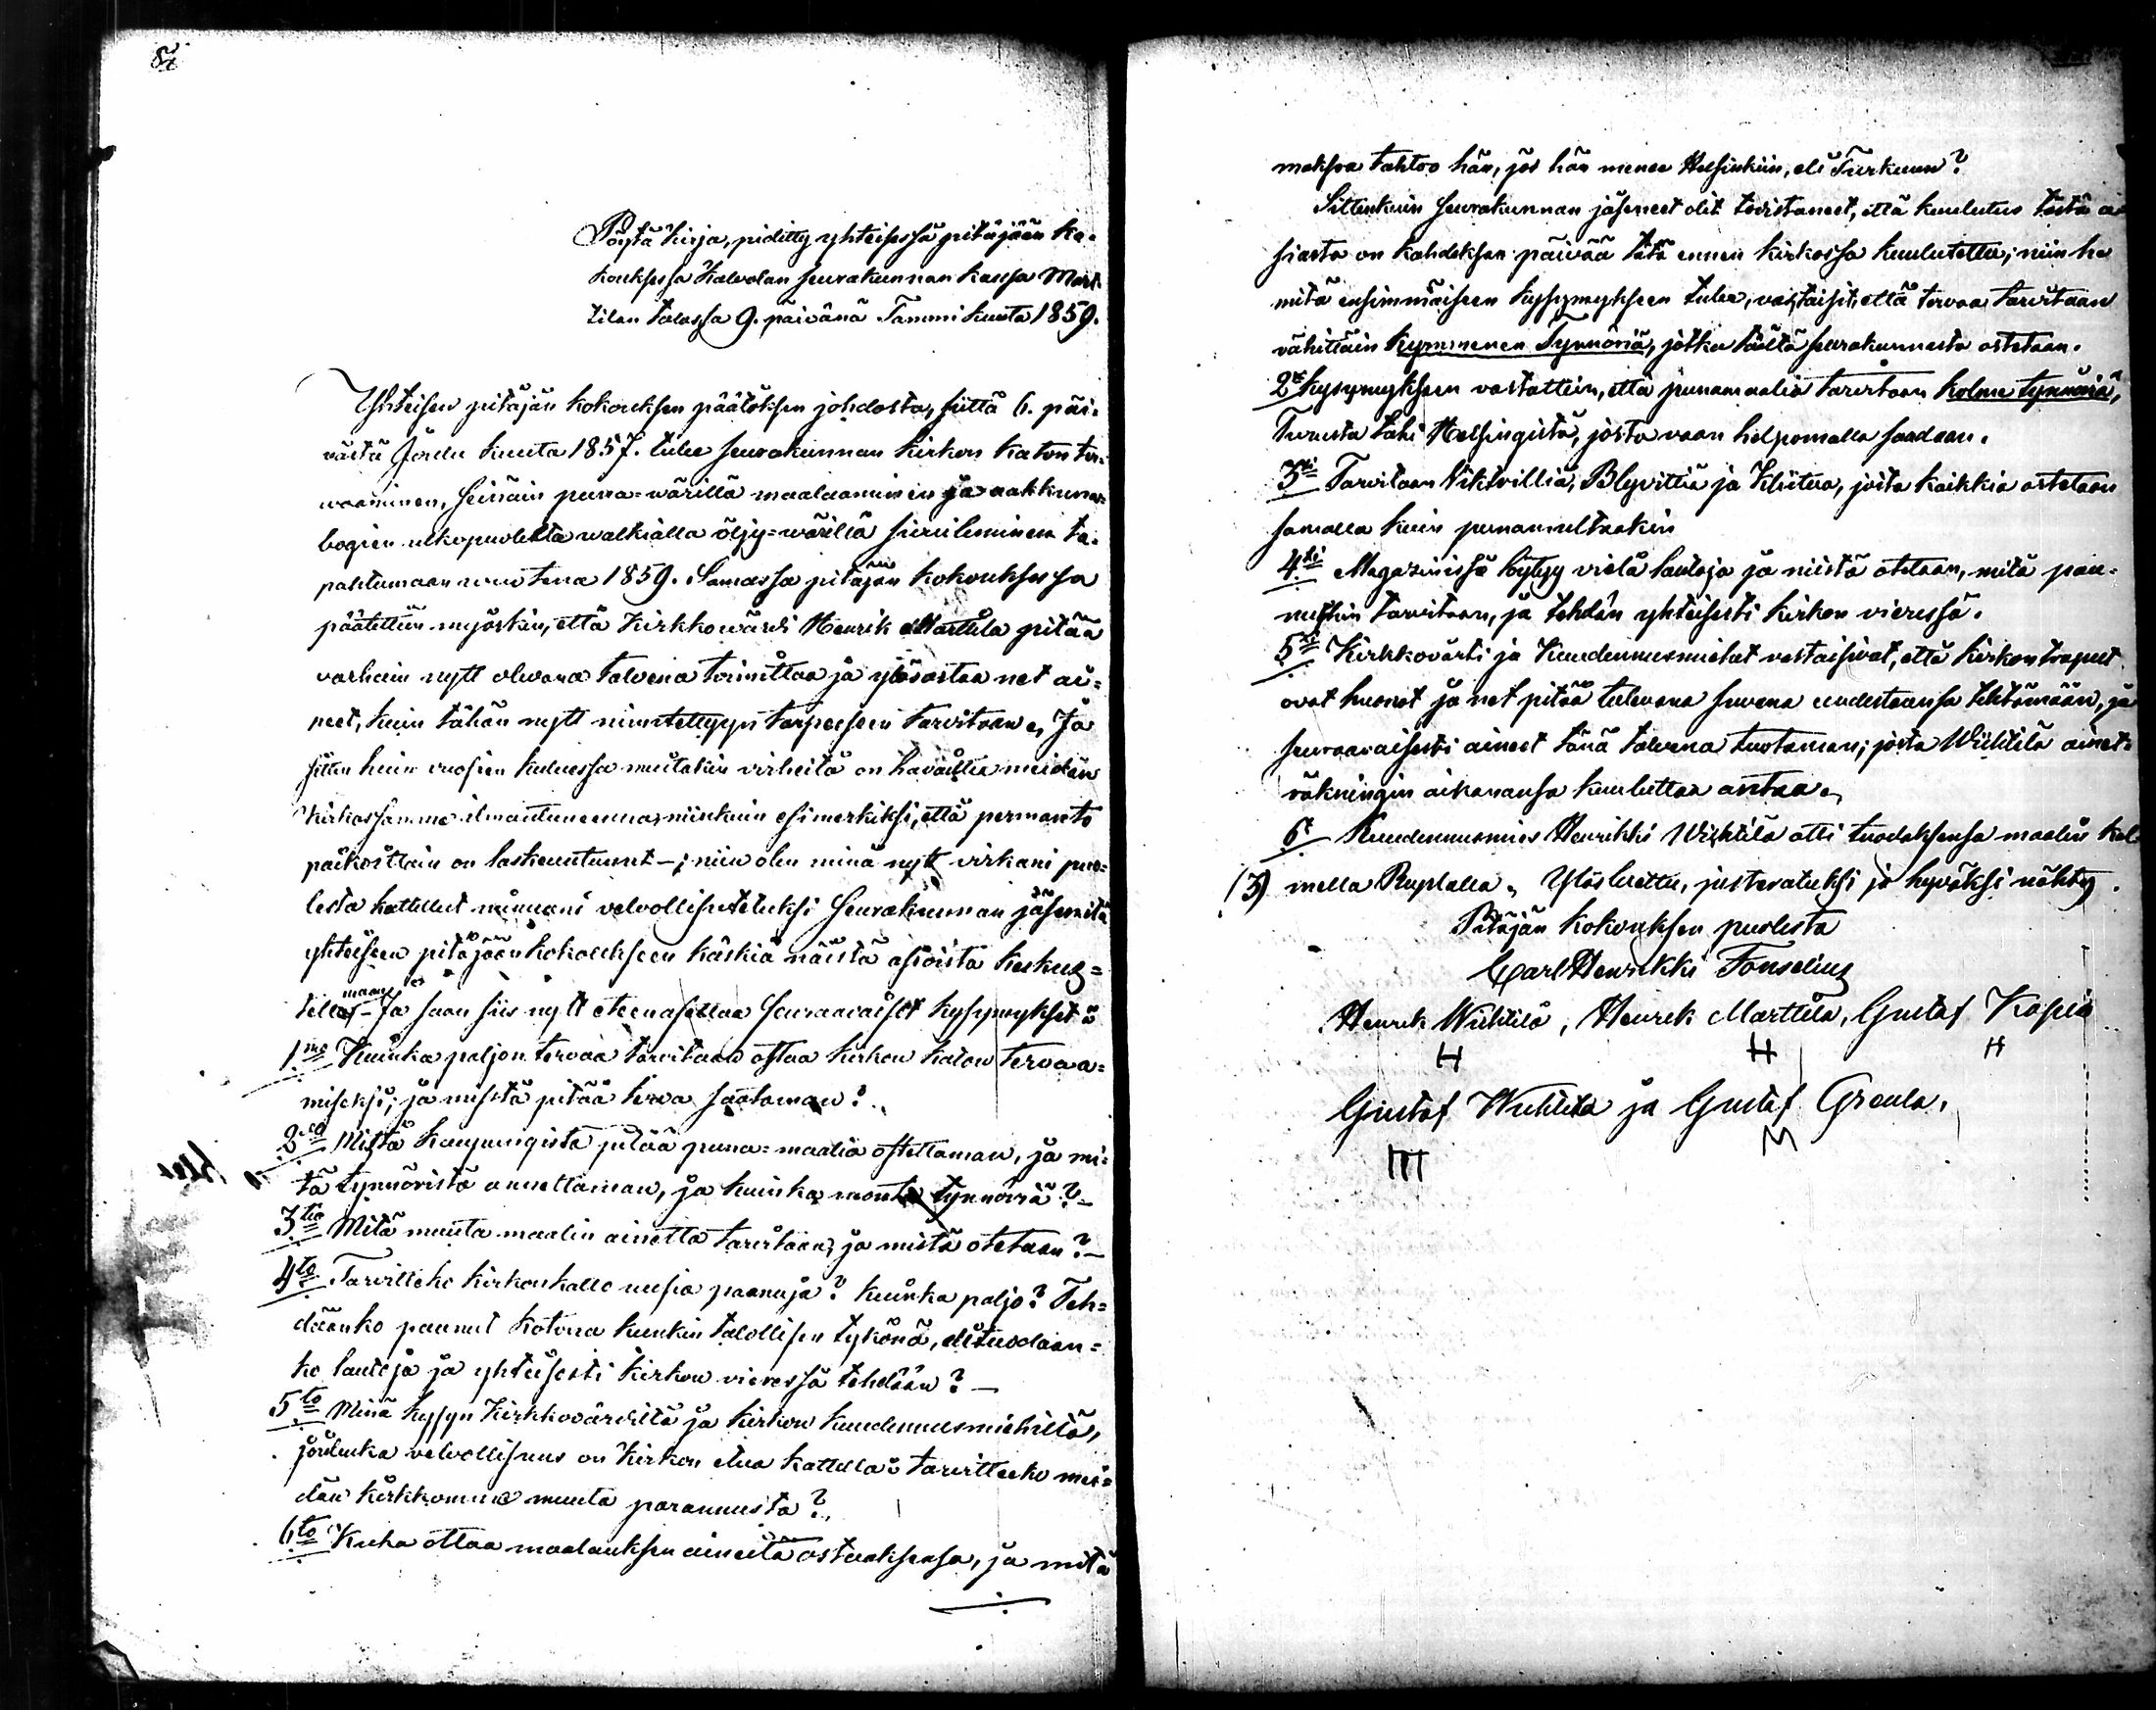 Pöytä kirja, piditty yhteisessä pitäjään ko-
kouksessa Kalvolan seurakunnan kansa Mart-
tilan talossa 9. päivänä Tammi kuuta 1859.
Yhteisen pitäjän kokouksen päätöksen johdosta, siitä 6. päi-
västä Joulu kuuta 1857. tulee seurakunnan kirkon katon ter-
waaminen, seinäin puna-wärillä maalaaminen ja aakkunan
bogien ulkopuolelta walkialla öljy-wärillä siwileminen ta-
pahtumaan wuotena 1859. Samassa pitäjän kokouksessa
päätettiin myöskin, että Kirkkowärdi Henrik Marttila pitää
varhain nytt olevana talvena toimittaa ja ylösostaa net ai-
neet, kuin tähän nytt nimitettyyn tarpeeseen tarvitaan. Ja
sitten kuin vuosien kuluessa muitakin virheitä on havaittu meidän
kirkossamme ilmantuneenna, niinkuin esimerkiksi, että permanto
paikoittain on laskeuntunut -; niin olen minä nytt virkani puo-
lesta katsellut minuani velvollisutetuksi Seurakunnan jäsenitä
yhteiseen pitäjään kokoukseen käskiä näistä asioista keskus-
tellamaan - Ja saan siis nytt eteenasettaa seuraavaiset kysymykset:
1mo Kuinka paljon tervaa tarvitaan ostaa kirkon katon tervaa-
miseksi; ja mistä pitää terva saataman?
2do Mistä kaupungista pitää puna-maalia ostettaman, ja mi-
tä tynnöristä annettaman, ja kuinka monta tynnöriä? -
3tio Mitä muuta maalin ainetta tarvitaan, ja mistä otetaan? -
4to Tarvitteko kirkonkatto uusia paanuja? kuinka paljo? Teh-
däänko paanut kotona kunkin talollisen tykönä, eli tuodaan-
ko lautoja ja yhteisesti kirkon vieressä tehdään? -
5to Minä kysyn Kirkkovärdiltä ja kirkon kuudennusmiehiltä,
joidenka velvollisuus on Kirkon etua katsella: tarvitteeko mei-
dän kirkkomme muuta parannusta?
6to Kuka ottaa maalauksen aineita ostaaksensa, ja mitä
maksoa tahtoo hän, jos hän menee Helsinkiin, eli Turkuun?
Sittenkuin seurakunnan jäseneet olit todistaneet, että kuulutus tästä a-
siasta on kahdeksan päivää tätä ennen kirkossa kuulutettu; niin he
mitä ensimmäiseen kysymykseen tulee, vastaisit, että tervaa tarvitaan
vähittäin kymmenen Tynnöriä, jotka täältä seurakunnasta ostetaan.
2x kysymykseen vastattiin, että punamaalia tarvitaan kolme tynnöriä,
Turusta tahi Helsingistä, josta vaan helpomalla saadaan.
3xi Tarvitaan Viktrillia, Blyvittia ja Kliitua, joita kaikkia ostetaan
samalla kuin punamultaakin
4xi Magaziinissä löytyy vielä lautoja ja niistä otetaan, mitä paa-
nuihin tarvitaan, ja tehdän yhteisesti kirkon vieressä.
5xi Kirkkovärti ja Kuudennusmiehet vastaisivat, että kirkon traput
ovat huonot ja net pitää tulevana suvena uudestaansa tehtämään, ja
seuraavaisesti aineet tänä talvena tuotaman; josta Wihtilä ainet-
räkningin aikanansa kuuluttaa antaa.
6x Kuudennusmies Henrikki Wihtilä otti tuodaksensa maalin kol-
(3) mella Ruplalla. Ylösluettu, justeratuksi ja hyväksi nähty.
Pitäjän kokouksen puolesta
Carl Henrikki Fonselius
Henrik Wihtilä, Henrik Marttila, Gustaf Kapio
Gustaf Wihtilä ja Gustaf Greula,